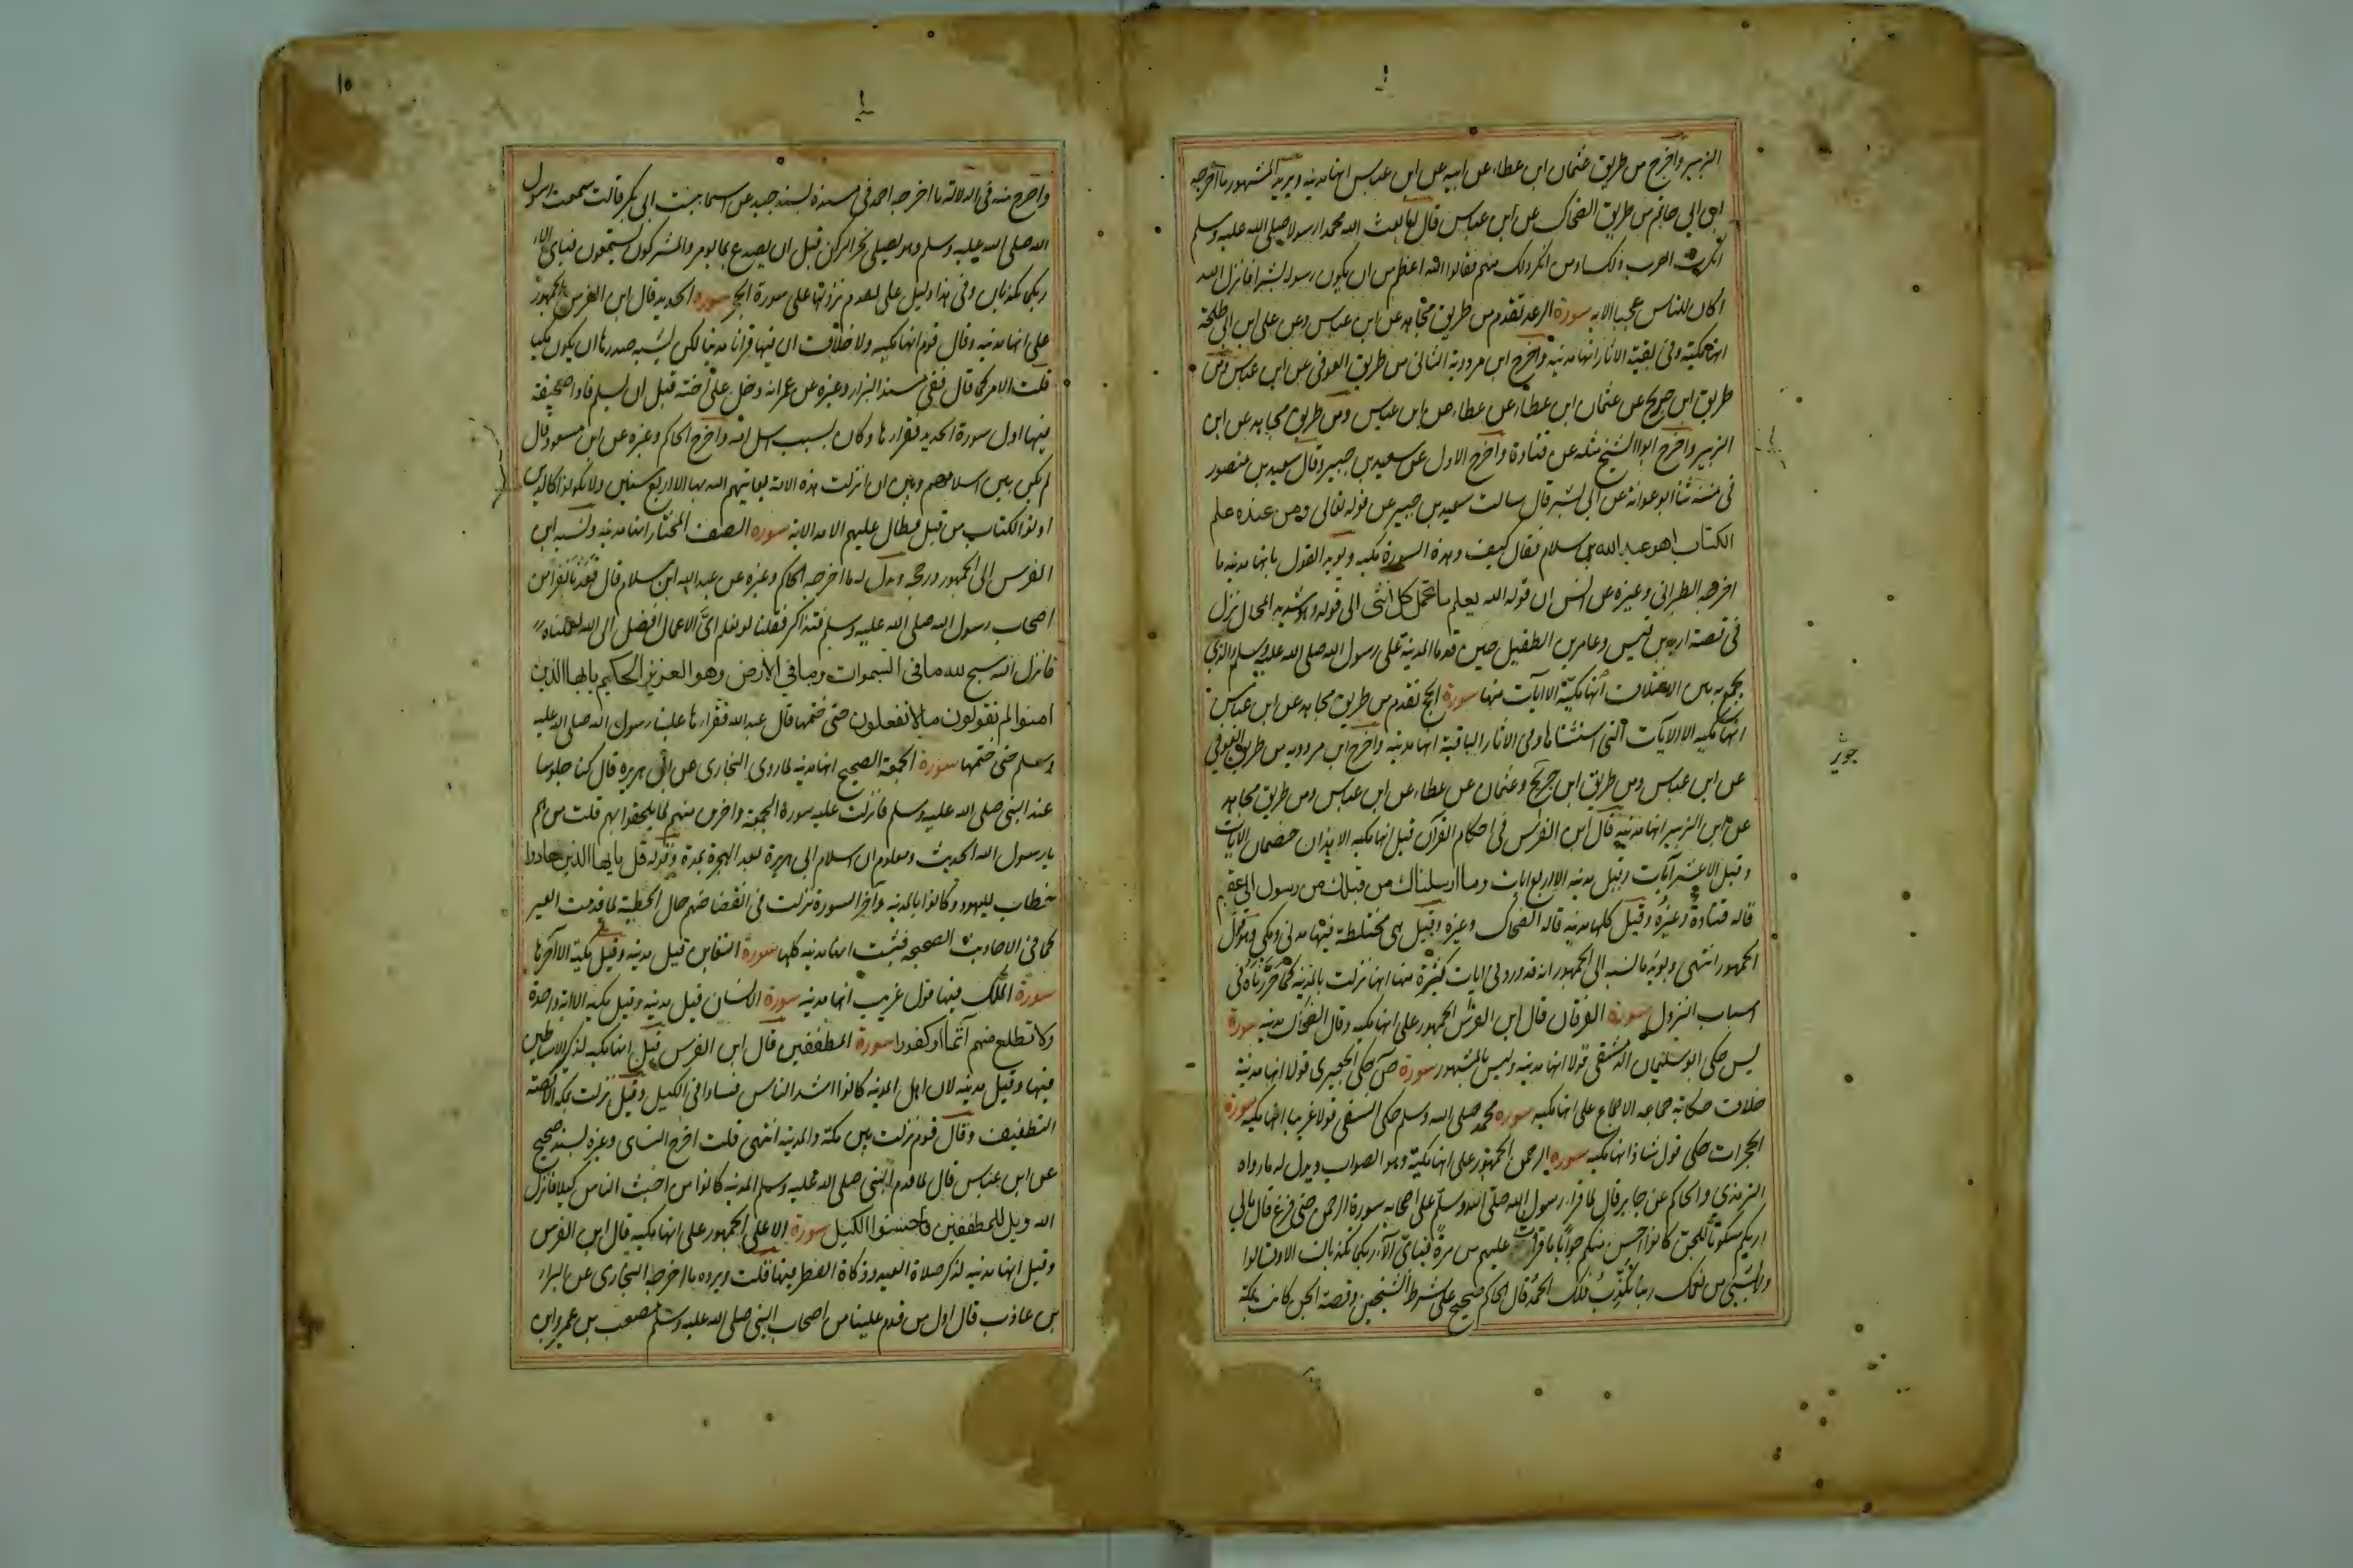 الزبير وأخرج من طريق عثمان ابن عطاء عن ابيه عن ابن عباس انها مدنية ويؤيد المشهور ما اخرجه
ابن ابي حاتم من طريق الضحاك عن ابن عباس قال لما بعث الله محمدا رسولا صلى الله عليه وسلم
انكرت العرب ذلك او من انكر ذلك منهم فقالوا الله اعظم من ان يكون رسوله بشرا فانزل الله
اكان للناس عجبا الاية سورة الرعد تقدم من طريق مجاهد عن ابن عباس وعن علي ابن ابي طلحة
انها مكية وفي بقية الاثار انها مدنية واخرج ابن مردوية الثاني من طريق العوفي عن ابن عباس ومن
طريق ابن جريج عن عثمان ابن عطاء عن عطاء عن ابن عباس ومن طريق مجاهد عن ابن
الزبير واخرج ابوا الشيخ مثله عن قتادة واخرج الاول عن سعيد بن جبير وقال سعيد بن منصور
في سننه ثنا ابو عوانة عن ابي بشر قال سالت سعيد بن جبير عن قوله تعالى ومن عنده علم
الكتاب اهو عبد الله بن سلام فقال كيف وهذه السورة مكية ويؤيد القول بانها مدنية ما
اخرجه الطبراني وغيره عن انس ان قوله الله يعلم ما تحمل كل انثى الى قوله وهو شديد المحال نزل
في قصة اربد بن قيس وعامر بن الطفيل حين قدما المدينة على رسول الله صلى الله عليه وسلم والذي
يجمع به بين الاختلاف انها مكية الا ايات منها سورة الحج تقدم من طريق مجاهد عن ابن عباس
انها مكية الا الايات التي استثناها وفي الاثار الباقية انها مدنية واخرج ابن مردويه من طريق العوفي
عن ابن عباس ومن طريق ابن جريج وعثمان عن عطاء عن ابن عباس ومن طريق مجاهد
عن ابن الزبير انها مدنية قال ابن الفرس في احكام القرآن قيل انها مكية الا هذان خصمان الايات
وقيل الا عشر آيات وقيل مدنية الا اربع ايات وما ارسلناك من قبلك من رسول الى عقيم
قاله قتادة وغيره وقيل كلها مدنية قاله الضحاك وغيره وقيل هي مختلطة فيها مدني ومكي وهو قول
الجمهور انتهى ويؤيد ما نسبه الى الجمهور انه قد ورد في ايات كثيرة منها انها نزلت بالمدينة كما حررناه في
اسباب النزول سورة الفرقان قال ابن الفرس الجمهور على انها مكية وقال الضحاك مدنية سورة
يس حكى ابو سليمان الدمشقي قولا انها مدنية وليس بالمشهور سورة ص حكى الجعبري قولا انها مدنية
خلاف حكاية جماعة الاجماع على انها مكية سورة محمد صلى الله وسلم حكى النسفي قولا غريبا انها مكية سورة
الحجرات حكى قول شاذا انها مكية سورة الرحمن الجمهور على انها مكية وهو الصواب ويدل له ما رواه
الترمذي والحاكم عن جابر قال لما قرا رسول الله صلى الله وسلم على اصحابه سورة الرحمن حتى فرغ قال مالي
اريكم سكوتا للجن كانوا احسن منكم جوابا ما قرأت عليهم من مرة فباي آلاء ربكما تكذبان الا وقالوا
ولا بشيء من نعمك ربنا نكذب فلك الحمد قال الحاكم صحيح على شرط الشيخين وقصة الجن كانت بمكة
جوير
١٥
واصرح منه في الدلالة ما اخرجه احمد في مسنده بسند جيد عن اسما بنت ابي بكر قالت سمعت رسول
الله صلى الله عليه وسلم وهو يصلي نحو الركن قبل ان يصدع بما يومر والمشركون يستمعون فباي الاء
ربكما تكذبان وفي هذا دليل على تقدم نزولها على سورة الحجر سورة الحديد قال ابن الفرس الجمهور
على انها مدنية وقال قوم انها مكية ولا خلاف ان فيها قرانا مدنيا لكن يشبه صدرها ان يكون مكيا
قلت الامر كما قال ففي مسند البزار وغيره عن عمر انه دخل على اخته قبل ان يسلم فاذا صحيفة
فيها اول سورة الحديد فقراها وكان سبب اسلامه واخرج الحاكم وغيره عن ابن مسعود قال
لم يكن بين اسلامهم وبين ان انزلت هذه الاية يعاتبهم الله بها الا اربع سنين ولا يكونوا كالذين
اوتوا الكتاب من قبل فطال عليهم الامد الاية سورة الصف المختار انها مدنية ونسبه ابن
الفرس الى الجمهور ورجحه ويدل له ما اخرجه الحاكم وغيره عن عبد الله ابن سلام قال قعدنا نفرا من
اصحاب رسول الله صلى الله عليه وسلم فتذاكرنا فقلنا لو نعلم اي الاعمال افضل الى الله لعملناه
فانزل الله سبح لله ما في السموات وما في الارض وهو العزيز الحكيم يايها الذين
امنوا لم تقولون ما لا تفعلون حتى ختمها قال عبد الله فقراها علينا رسول الله صلى الله عليه
وسلم حتى ختمها سورة الجمعة الصحيح انها مدنية لما روى البخاري عن ابي هريرة قال كنا جلوسا
عند النبي صلى الله عليه وسلم فانزلت عليه سورة الجمعة واخرين منهم لما يلحقوا بهم قلت من هم
يا رسول الله الحديث ومعلوم ان اسلام ابي هريرة بعد الهجرة بمدة وقوله قل يايها الذين هادوا
خطاب لليهود وكانوا بالمدينة وآخر السورة نزلت في انفضاضهم حال الخطبة لما قدمت العير
كما في الاحاديث الصحيحة فثبت انها مدنية كلها سورة التغابن قيل مدنية وقيل مكية الا آخرها
سورة الملك فيها قول غريب انها مدنية سورة الانسان قيل مدنية وقيل مكية الا اية واحدة
ولا تطع منهم آثما او كفورا سورة المطففين قال ابن الفرس قيل انها مكية لذكر الاساطير
فيها وقيل مدنية لان اهل المدينة كانوا اشد الناس فسادا في الكيل وقيل نزلت بمكة الا قصة
التطفيف وقال قوم نزلت بين مكة والمدينة انتهى قلت اخرج النساي وغيره بسند صحيح
عن ابن عباس قال لما قدم النبي صلى الله عليه وسلم المدينة كانوا من اخبث الناس كيلا فانزل
الله ويل للمطففين فاحسنوا الكيل سورة الاعلى الجمهور على انها مكية قال ابن الفرس
وقيل انها مدنية لذكر صلاة العيد وزكاة الفطر فيها قلت ويرده ما اخرجه البخاري عن البراء
بن عازب قال اول من قدم علينا من اصحاب النبي صلى الله عليه وسلم مصعب بن عمير وابن